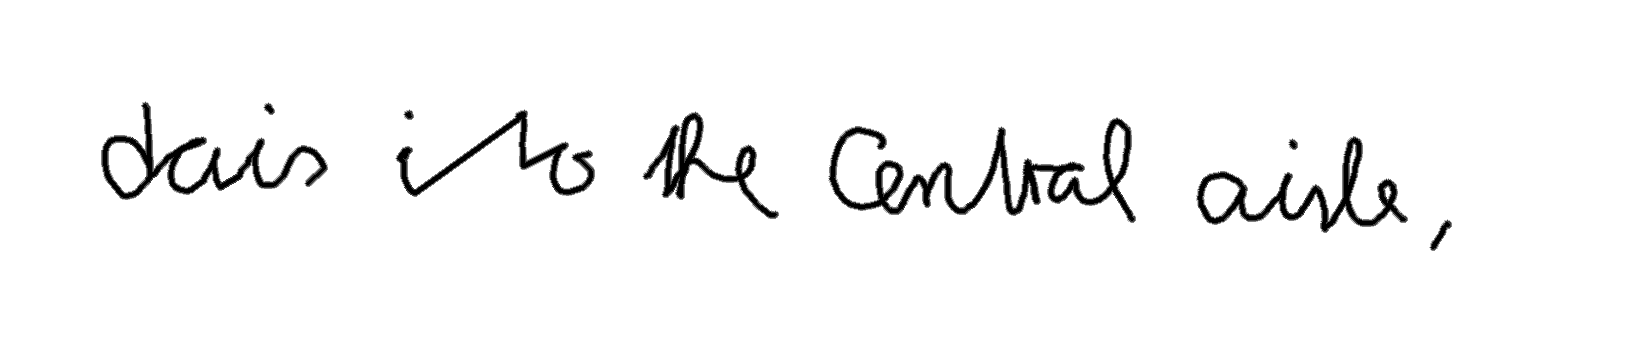 dais into the central aisle,